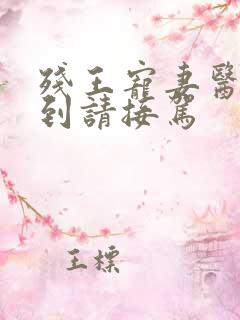 殘王寵妻醫
到請接駕
王標